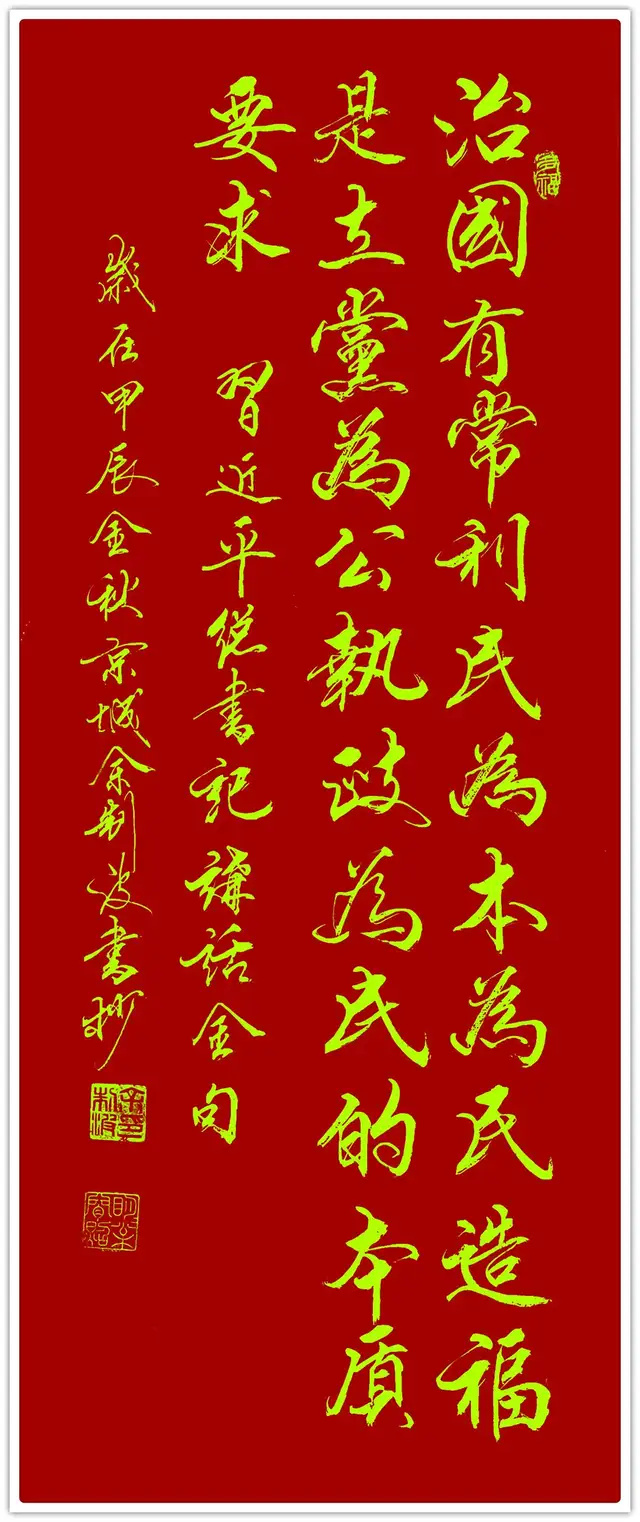 治國有常利民為本為民造福
是立黨為公執政為民的本质
要求 習近平總書記講話金句
歲在甲辰金秋京城余制波書抄